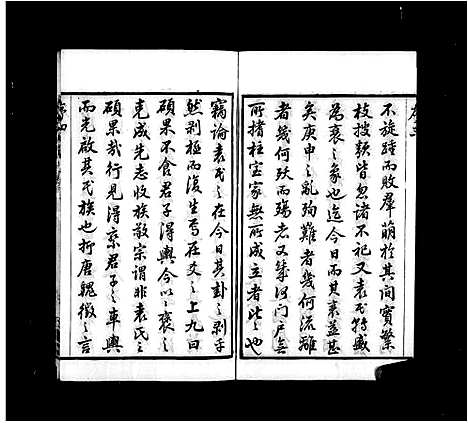 不旋踵而敗群萌於其間實繁
枝搜類皆忽諸不祀又袁氏特盛
為衰之象也迄今日而其衰益甚
矣庚申之亂殉難者幾何流離
者幾何歿而殤者又幾何門戶無
所撐柱室家無所成立者比比也
竊論袁氏之在今日其卦之剝乎
然剝極而復生焉在爻之上九曰
碩果不食君子得輿今以袞之
克成先志收族敬宗謂非袁氏之
碩果哉行見得來君子之車輿
而光啟其氏族也抑唐魏徵之言